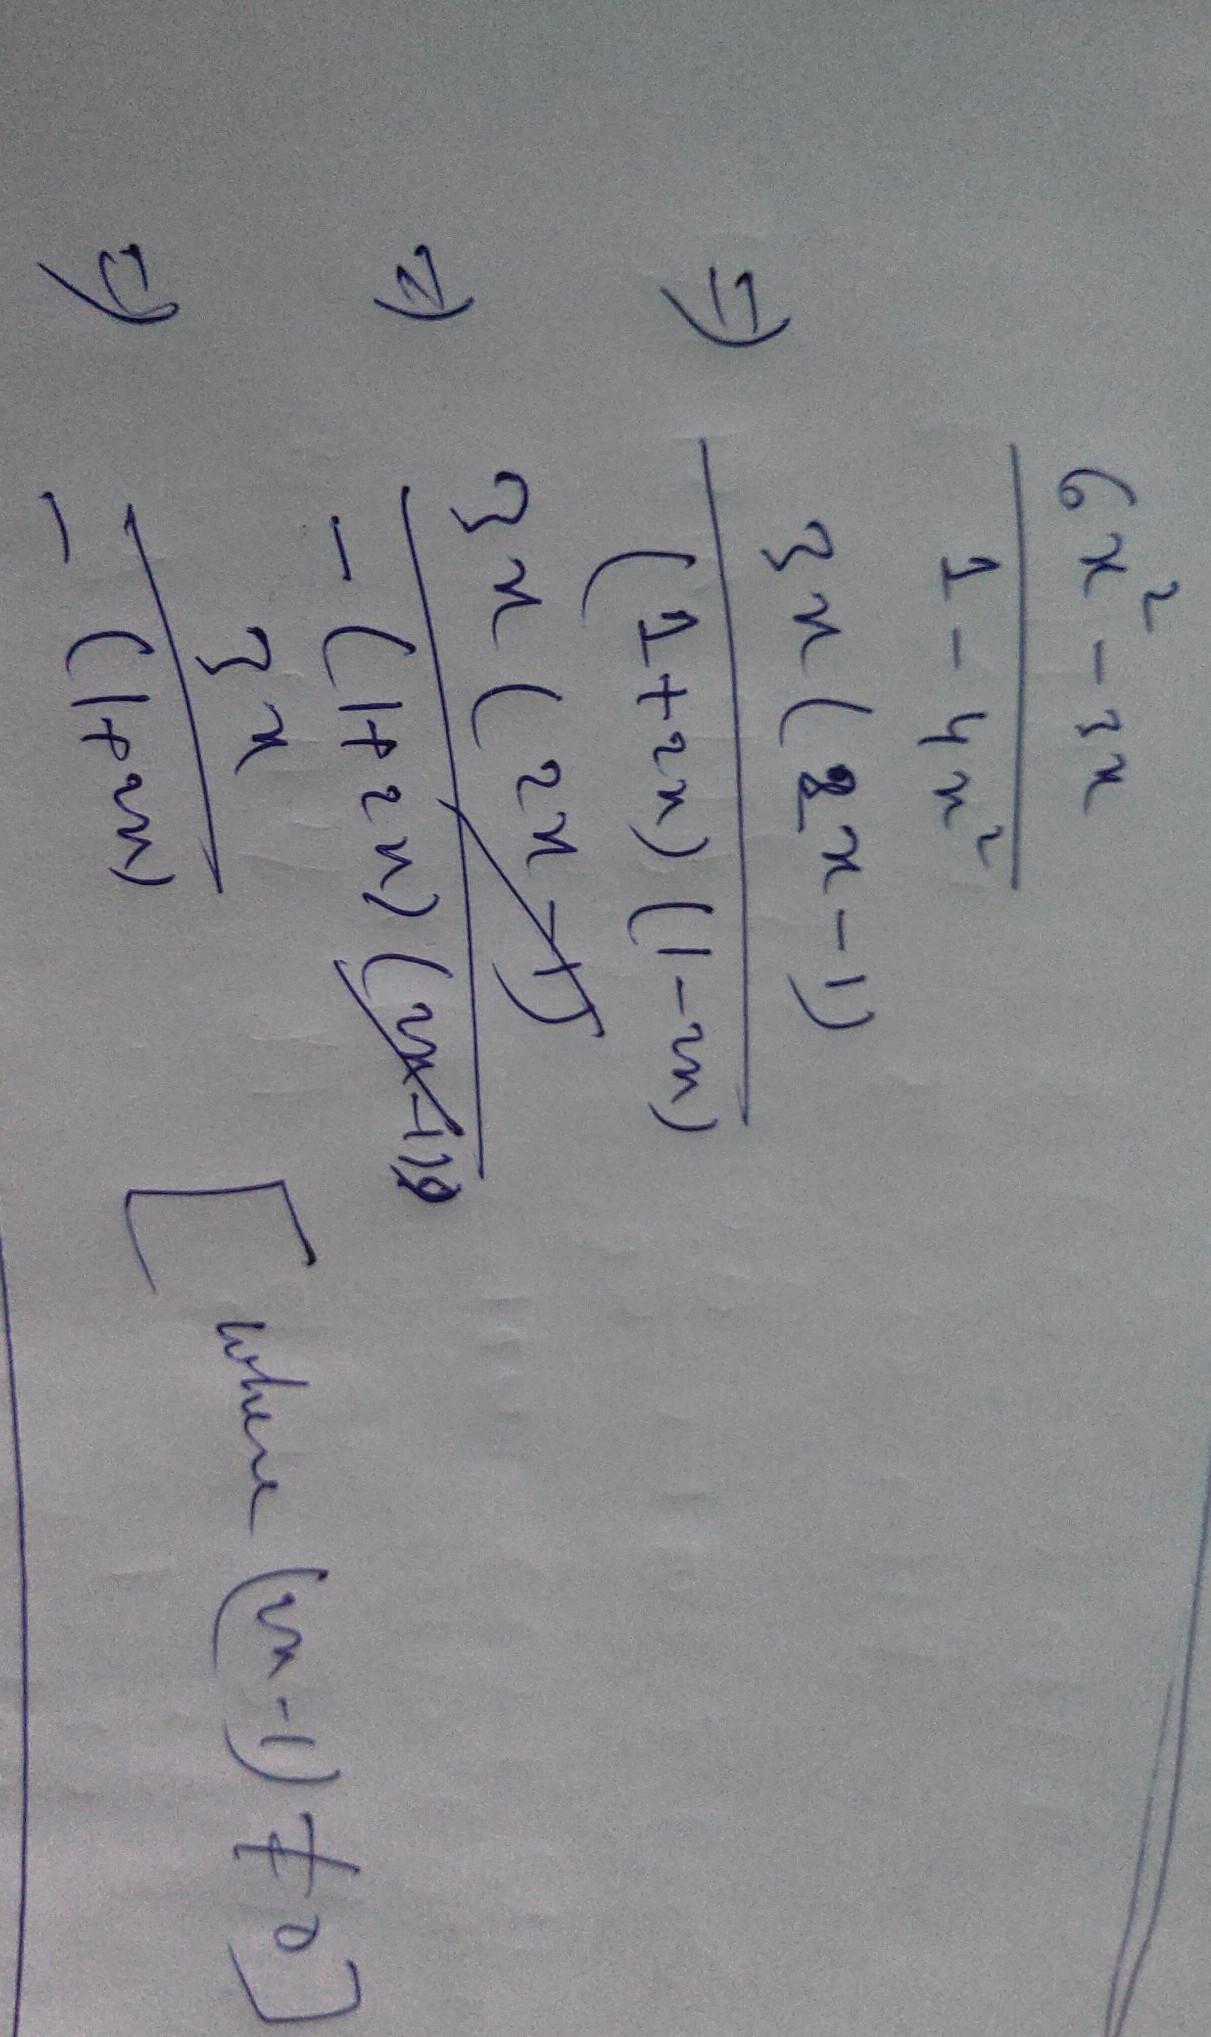 6x² - 3x
1 - 4x²
⇒ 3x (2x - 1)
(1 + 2x) (1 - 2x)
⇒ 3x (2x - 1)
- (1 + 2x) (2x - 1)
⇒ 3x
- (1 + 2x) [where (2x - 1) ≠ 0]